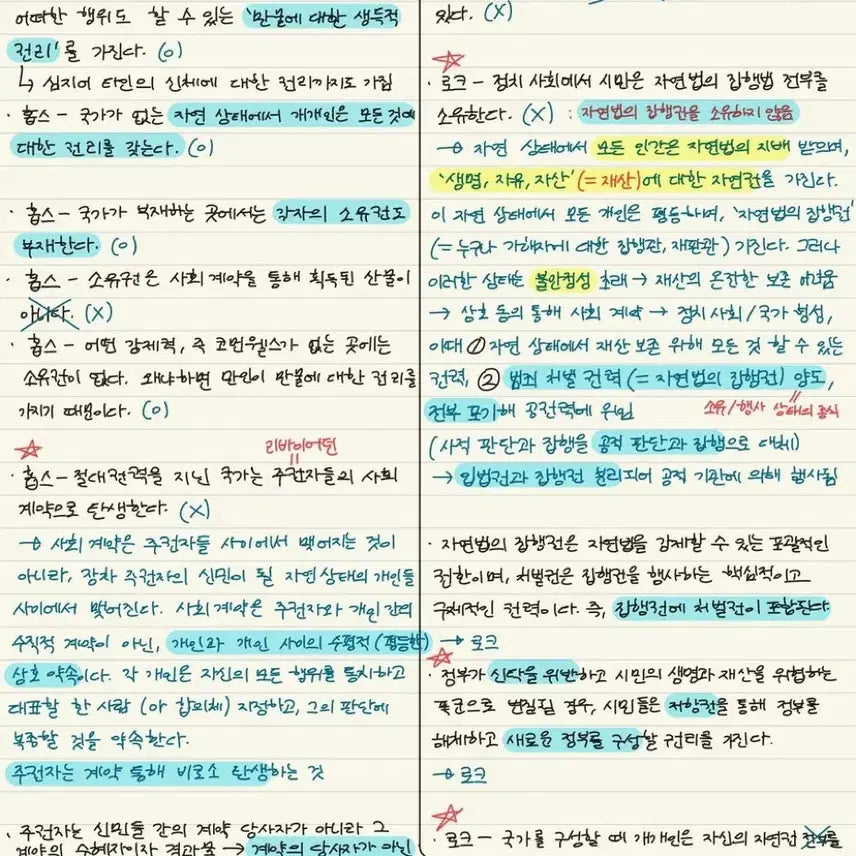 어떠한 행위도 할 수 있는 '만물에 대한 생득적
권리'를 가진다. (o)
↳ 심지어 타인의 신체에 대한 권리까지도 가짐
· 홉스 - 국가가 없는 자연 상태에서 개개인은 모든 것에
대한 권리를 갖는다. (o)
· 홉스 - 국가가 부재하는 곳에서는 각자의 소유권도
부재한다. (o)
· 홉스 - 소유권은 사회계약을 통해 획득된 산물이
아니다. (X)
· 홉스 - 어떤 강제력, 즉 코먼웰스가 없는 곳에는
소유권이 없다. 왜냐하면 만인이 만물에 대한 권리를
가지기 때문이다. (o)
리바이어던
· 홉스 - 절대권력을 지닌 국가는 주권자들의 사회
계약으로 탄생한다. (X)
→ 사회 계약은 주권자들 사이에서 맺어지는 것이
아니라, 장차 주권자의 신민이 될 자연상태의 개인들
사이에서 맺어진다. 사회계약은 주권자와 개인 간의
수직적 계약이 아닌, 개인과 개인 사이의 수평적 (평등한)
상호 약속이다. 각 개인은 자신의 모든 행위를 통치하고
대표할 한 사람 (or 합의체) 지정하고, 그의 판단에
복종할 것을 약속한다.
주권자는 계약 통해 비로소 탄생하는 것
· 주권자는 신민들 간의 계약 당사자가 아니라 그
계약의 수혜자이자 결과물 → 계약의 당사자가 아닌
있다. (X)
· 로크 - 정치 사회에서 시민은 자연법의 집행법 전부를
소유한다. (X) : 자연법의 집행권을 소유하지 않음
→ 자연 상태에서 모든 인간은 자연법의 지배 받으며,
'생명, 자유, 자산' (= 재산)에 대한 자연권을 가진다.
이 자연 상태에서 모든 개인은 평등하며, '자연법의 집행권'
(= 누구나 가해자에 대한 집행관, 재판관) 가진다. 그러나
이러한 상태는 불안정성 초래 → 재산의 온전한 보존 어려움
→ 상호 동의 통해 사회 계약 → 정치 사회/국가 형성,
이때 ① 자연 상태에서 재산 보존 위해 모든 것 할 수 있는
권력, ② 범죄 처벌 권력 (= 자연법의 집행권) 양도,
전부 포기해 공권력에 위임
소유/행사 상태의 종식
(사적 판단과 집행을 공적 판단과 집행으로 대체)
→ 입법권과 집행권 분리되어 공적 기관에 의해 행사됨
· 자연법의 집행권은 자연법을 강제할 수 있는 포괄적인
권한이며, 처벌권은 집행권을 행사하는 핵심적이고
구체적인 권력이다. 즉, 집행권에 처벌권이 포함된다.
→ 로크
· 정부가 신탁을 위반하고 시민의 생명과 재산을 위협하는
폭군으로 변질될 경우, 시민들은 저항권을 통해 정부를
해체하고 새로운 정부를 구성할 권리를 가진다.
→ 로크
· 로크 - 국가를 구성할 때 개개인은 자신의 자연권 전부를